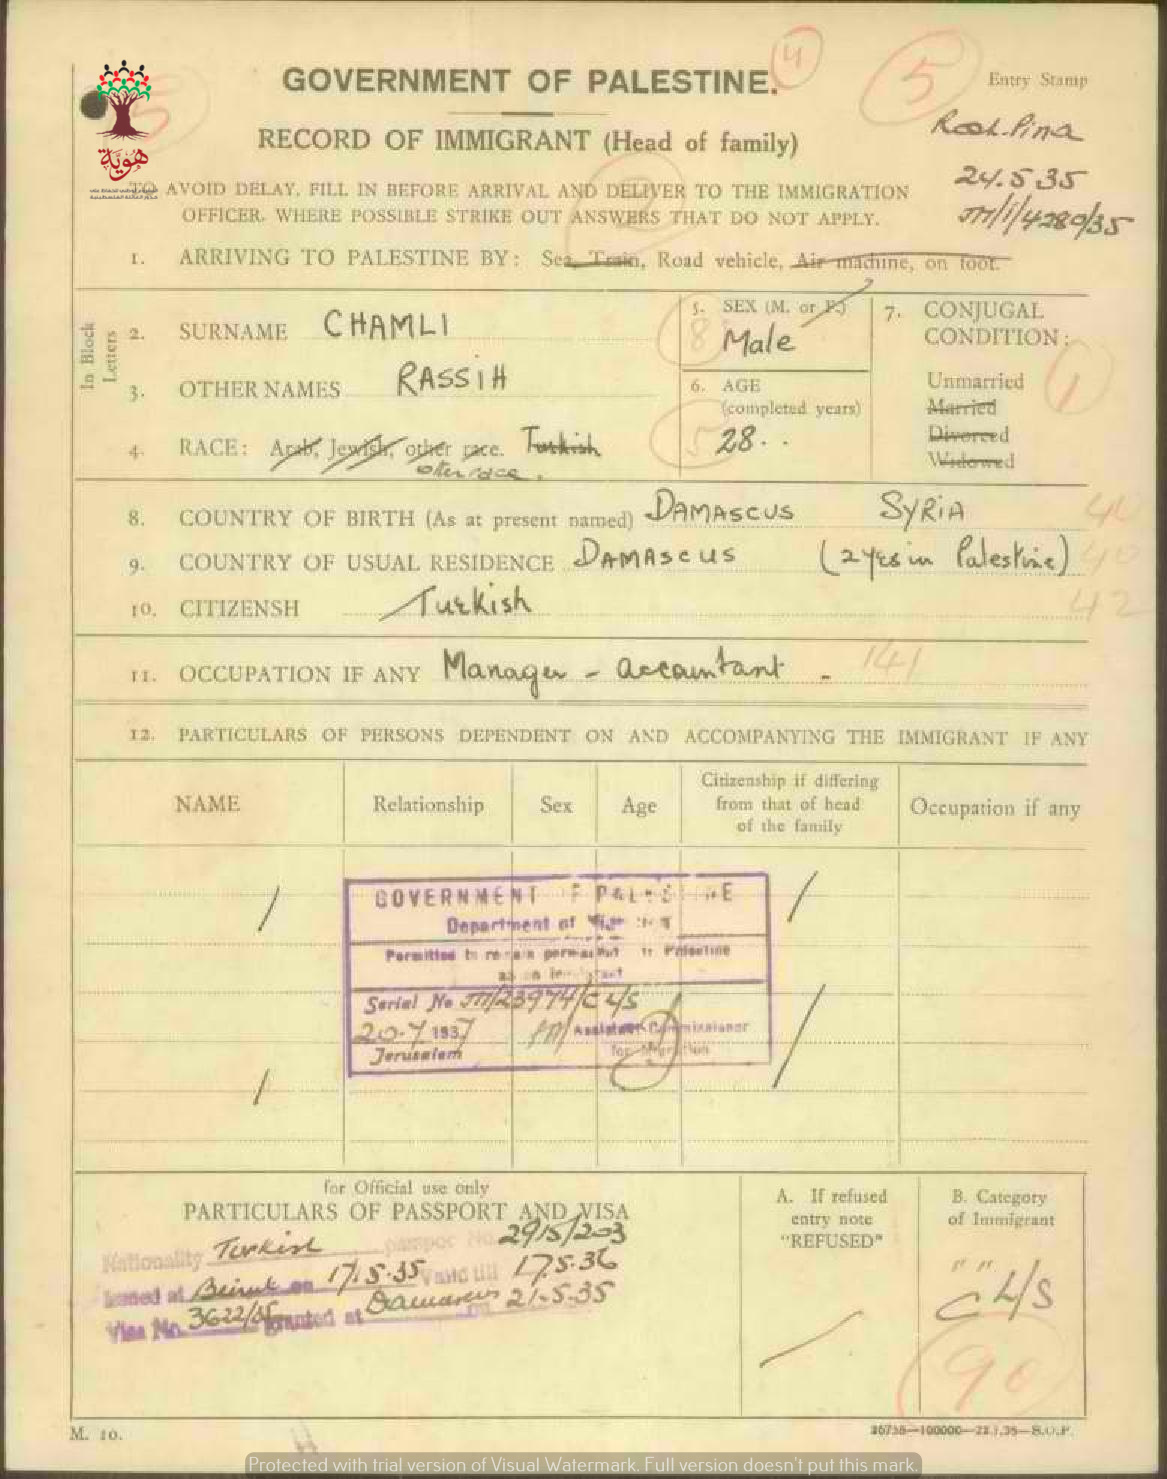 GOVERNMENT OF PALESTINE.
4
5
Entry Stamp
Rosh.Pina
RECORD OF IMMIGRANT (Head of family)
هوية
24.5 35
TO AVOID DELAY, FILL IN BEFORE ARRIVAL AND DELIVER TO THE IMMIGRATION
OFFICER. WHERE POSSIBLE STRIKE OUT ANSWERS THAT DO NOT APPLY.
M/1/4280/35
1. ARRIVING TO PALESTINE BY: Sea, Train, Road vehicle, Air machine, on foot.
In Block Letters
2. SURNAME CHAMLI
3. OTHER NAMES RASSIH
4. RACE: Arab, Jewish, other race. Turkish
other race.
5. SEX (M. or F.)
8
Male
6. AGE
(completed years)
5
28..
7. CONJUGAL
CONDITION:
Unmarried
1
Married
Divorced
Widowed
8. COUNTRY OF BIRTH (As at present named) DAMASCUS SYRIA
9. COUNTRY OF USUAL RESIDENCE DAMASCUS (2 yrs in Palestine) 40
10. CITIZENSH Turkish 42
11. OCCUPATION IF ANY Manager - accountant - 141
12. PARTICULARS OF PERSONS DEPENDENT ON AND ACCOMPANYING THE IMMIGRANT IF ANY
NAME
Relationship
Sex
Age
Citizenship if differing
from that of head
of the family
Occupation if any
GOVERNMENT OF PALESTINE
Department of Migration
Permitted to remain permanently in Palestine
as an immigrant
Serial No M/23974/C L/S
20-7 1937
Assistant Commissioner
Jerusalem
for Migration
for Official use only
PARTICULARS OF PASSPORT AND VISA
Nationality Turkish passport No. 2915/203
Issued at Beirut on 17.5.35 Valid till 17.5.36
Visa No. 3622/35 granted at Damascus on 21-5-35
A. If refused
entry note
"REFUSED"
B. Category
of Immigrant
" "
C L/S
90
M. 10.
26738—100000—22.1.35—S.O.P.
Protected with trial version of Visual Watermark. Full version doesn't put this mark.